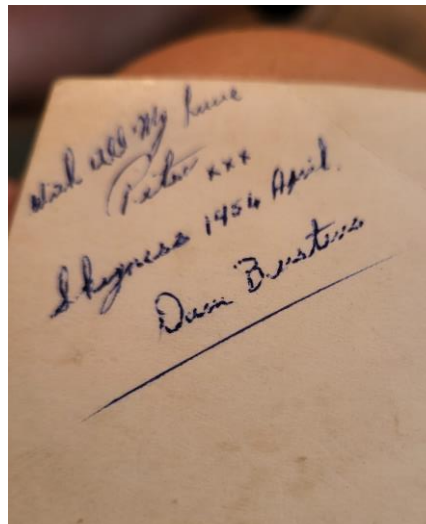 With All My Love
Peter xxx
Skegness 1954 April.
Dam Busters